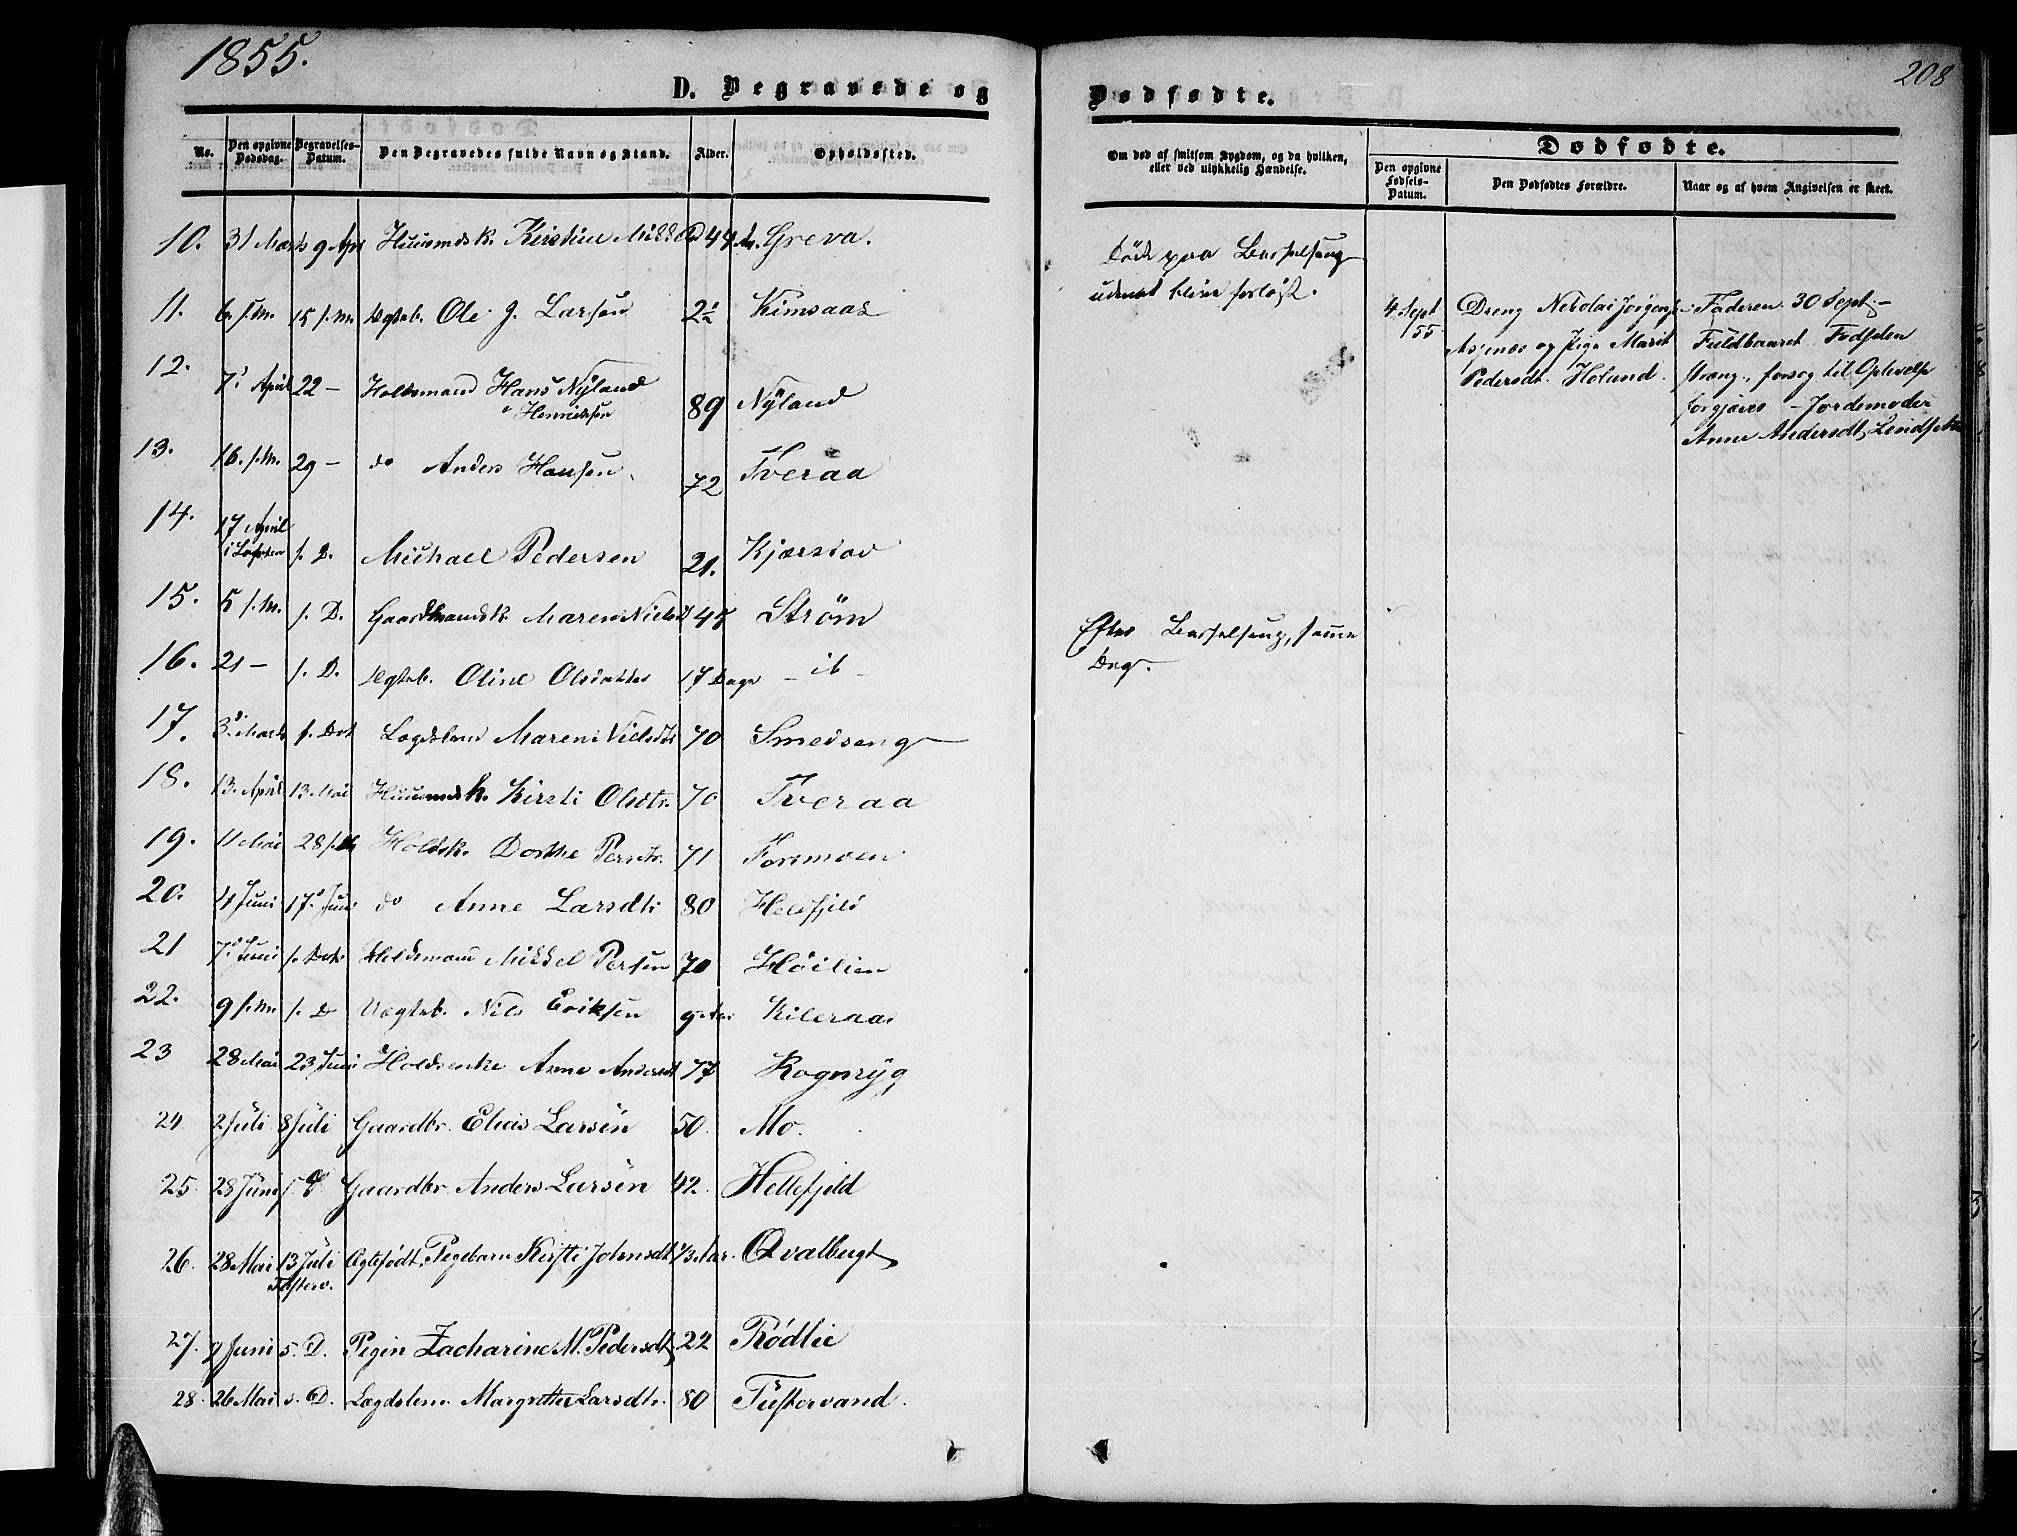 1855.
208
D. Begravede og
Dødfødte.
No.
Den opgivne Dødsdag.
Begravelses-Datum.
Den Begravedes fulde Navn og Stand.
Alder.
Opholdssted.
Om død af smitsom Sygdom, og da hvilken, eller ved ulykkelig Hændelse.
Dødfødte.
Den opgivne Fødsels-Datum.
Den Dødfødtes Forældre.
Naar og af hvem Angivelsen er skeet.
10. 31 Marts 9 Apr Huusmdsk. Kirstine 44 Greva.
Døde paa Barselseng
uden at blive forløst.
11. 6. s.M. 15 s.M. Ægteb. Ole J. Larsen 2½ Kimsaas
4 Sept 55
Dreng Nekolai
og Pige Marit
Pedersdt. Holand.
Faderen 30 Sept. -
Fuldbaaret Fødselen
stræng, forsøg til Oplivelse
forgjæves - Jordemoder
Anne Andersdt. Lindset
12. 7. April 22 - Holdsmand Hans Nyland
Henriksen 89 Nyland
13. 16. s.M. 29 - do Anders Hansen 72 Tveraa
14. 17 April
i Lofoten s. D. Michael Pedersen 21. Kjærstad
15. 5 s.M. s. D. Gaardmandsk. Maren Nielsd 45 Strøm
Efter Barselseng, samme
Dag.
16. 21 - s. D. Ægteb. Oline Olsdatter 17 Dage - it -
17. 3. Marts s. Dat Lægdslem Maren Nielsdtr 70 Smedseng
18. 13. April 13 Mai Huusmdsk. Kirsti Olsdtr. 70 Tveraa
19. 11 Mai 28 s.M. Holdsk. Dorthe Persdtr. 71 Forsmoen
20. 4 Juni 17. Juni do Anne Larsdtr 80 Helsfjeld
21 7. Juni s. Dat. Holdsmand Mikkel Persen 70 Høilien
22. 9 s.M. s. D Uægteb. Nils Eriksen 9 Kileraas
23 28 Mai 23 Juni Holdsenke Anne Andersdt 77 Rognryg
24. 2 Juli 8 Juli Gaardbr. Elias Larsen 50. Mo.
25. 28 Juni s. D Gaardbr. Anders Larsen 42. Hellefjeld
26. 28 Mai 13 Juli
Tüsterv. Ægtefødt Pigebarn Kirsti Johnsdt 1/3 Aar. Qvalbugt
27. 9 Juni s. D. Pigen Zacharine M. Pedersdt, 22 Rødlie
28. 26 Mai s. D. Lægdslem Margrethe Larsdtr. 80 Tüstervand.